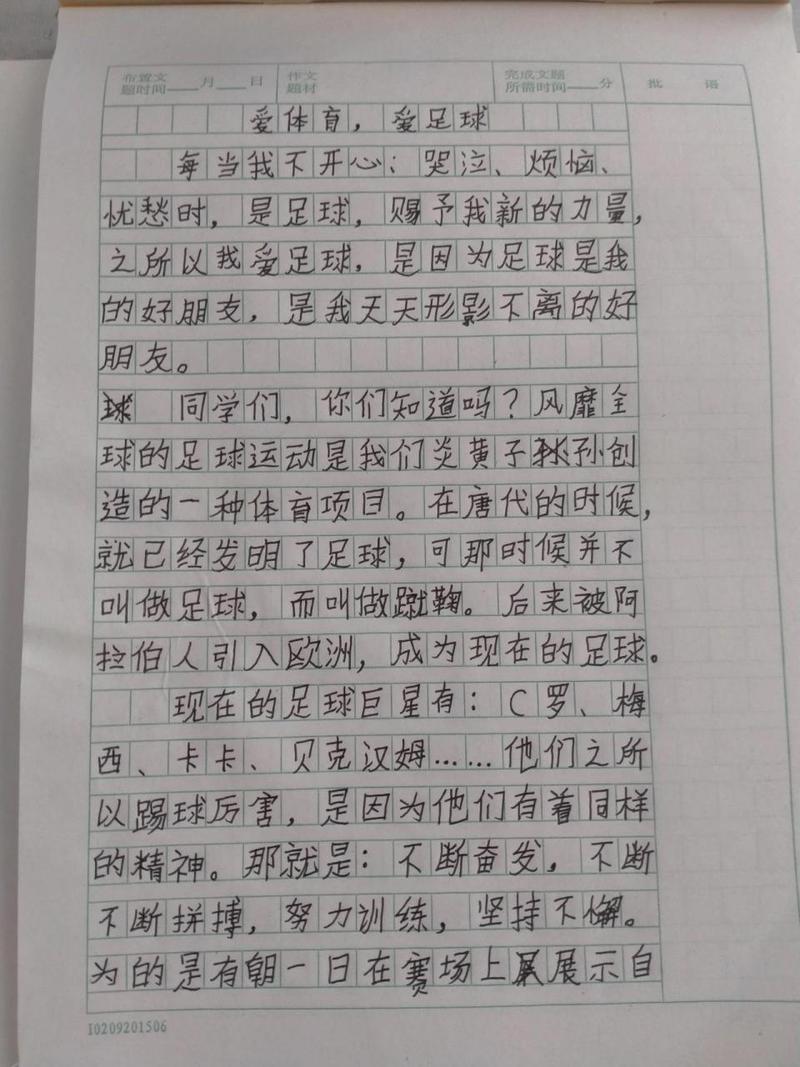 布置文 题时间 月 日 作文 题材 完成文题 所需时间 分 批 语
爱体育，爱足球
每当我不开心：哭泣、烦恼、
忧愁时，是足球，赐予我新的力量，
之所以我爱足球，是因为足球是我
的好朋友，是我天天形影不离的好
朋友。
同学们，你们知道吗？风靡全
球的足球运动是我们炎黄子孙创
造的一种体育项目。在唐代的时候，
就已经发明了足球，可那时候并不
叫做足球，而叫做蹴鞠。后来被阿
拉伯人引入欧洲，成为现在的足球。
现在的足球巨星有：C罗、梅
西、卡卡、贝克汉姆……他们之所
以踢球厉害，是因为他们有着同样
的精神。那就是：不断奋发，不断
不断拼搏，努力训练，坚持不懈。
为的是有朝一日在赛场上展示自
I0209201506